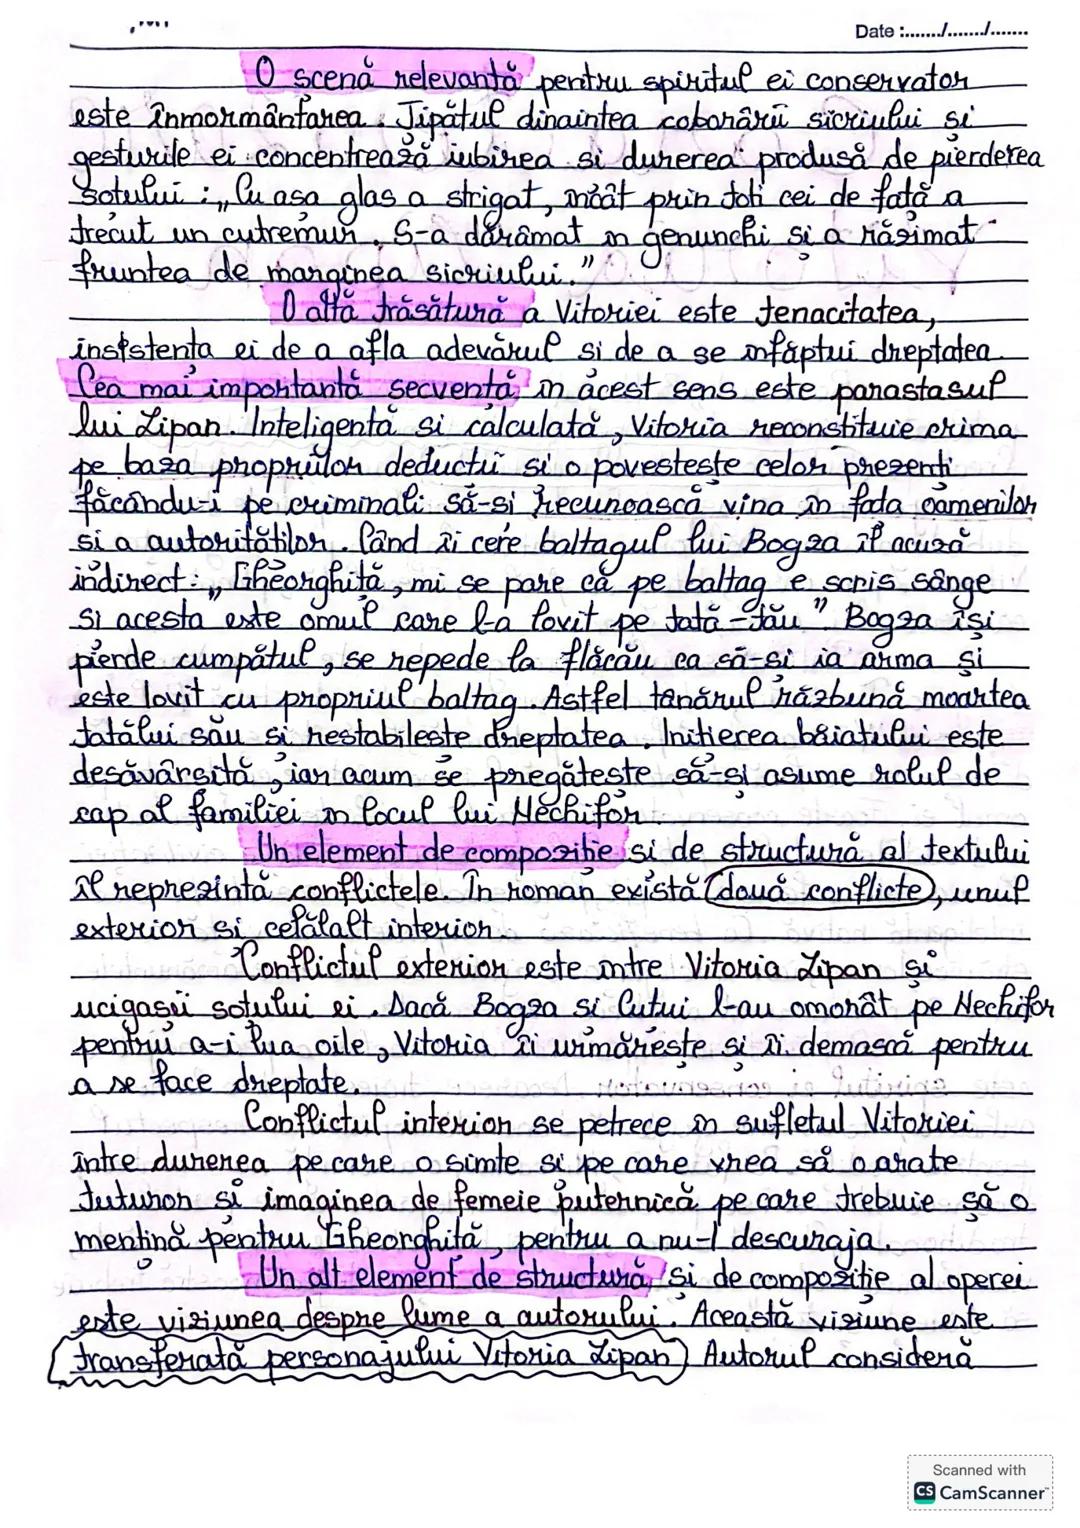 Date :......./......./.......
O scenă relevantă pentru spiritul ei conservator
este înmormântarea. Țipătul dinaintea coborârii sicriului și
gesturile ei concentrează iubirea și durerea produsă de pierderea
soțului: „Cu așa glas a strigat, încât prin toți cei de față a
trecut un cutremur. S-a dărâmat în genunchi și a răzimat
fruntea de marginea sicriului."
O altă trăsătură a Vitoriei este tenacitatea,
insistența ei de a afla adevărul și de a se înfăptui dreptatea.
Cea mai importantă secvență în acest sens este parastasul
lui Lipan. Inteligentă și calculată, Vitoria reconstituie crima
pe baza propriilor deducții și o povestește celor prezenți
făcându-i pe criminali să-și recunoască vina în fața oamenilor
și a autorităților. Când îi cere baltagul lui Bogza îl acuză
indirect: „Gheorghiță, mi se pare că pe baltag e scris sânge
și acesta este omul care l-a lovit pe tată-tău". Bogza își
pierde cumpătul, se repede la flăcău ca să-și ia arma și
este lovit cu propriul baltag. Astfel tânărul răzbună moartea
tatălui său și restabilește dreptatea. Inițierea băiatului este
desăvârșită, iar acum se pregătește să-și asume rolul de
cap al familiei în locul lui Nechifor.
Un element de compoziție și de structură al textului
îl reprezintă conflictele. În roman există două conflicte, unul
exterior și celălalt interior.
Conflictul exterior este între Vitoria Lipan și
ucigașii soțului ei. Dacă Bogza și Cuțui l-au omorât pe Nechifor
pentru a-i lua oile, Vitoria îi urmărește și îi demască pentru
a se face dreptate.
Conflictul interior se petrece în sufletul Vitoriei
între durerea pe care o simte și pe care vrea să o arate
tuturor și imaginea de femeie puternică pe care trebuie să o
mențină pentru Gheorghiță, pentru a nu-l descuraja.
Un alt element de structură și de compoziție al operei
este viziunea despre lume a autorului. Această viziune este
transferată personajului Vitoria Lipan. Autorul consideră
Scanned with
CS CamScanner